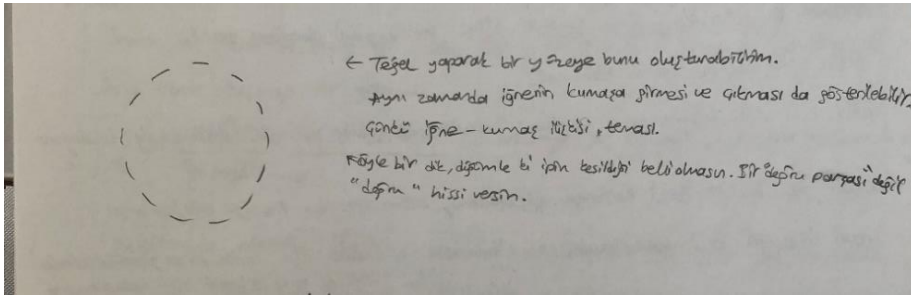 ← Teğel yaparak bir yüzeye bunu oluşturabilirim.
Aynı zamanda iğnenin kumaşa girmesi ve çıkması da gösterilebilir.
Çünkü iğne-kumaş ilişkisi, teması.
Böyle bir dik, düğümle ki ipin kesildiği belli olmasın. Bir "doğru parçası" değil
"doğru" hissi versin.